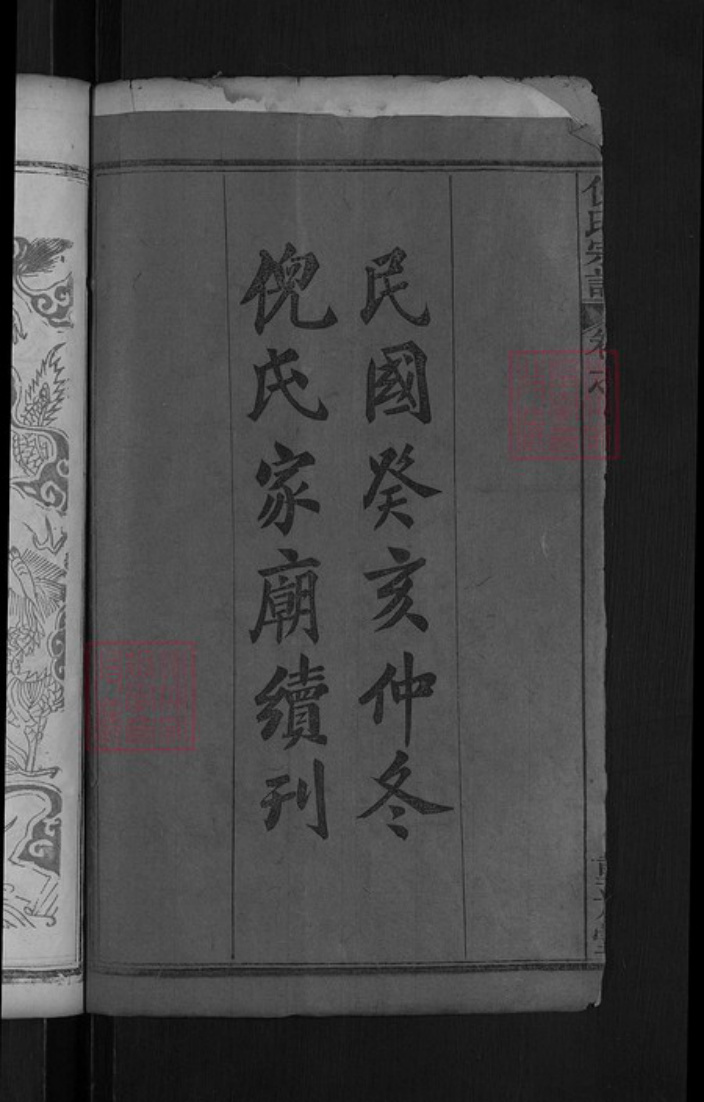 民國癸亥仲冬
倪氏家廟續刊